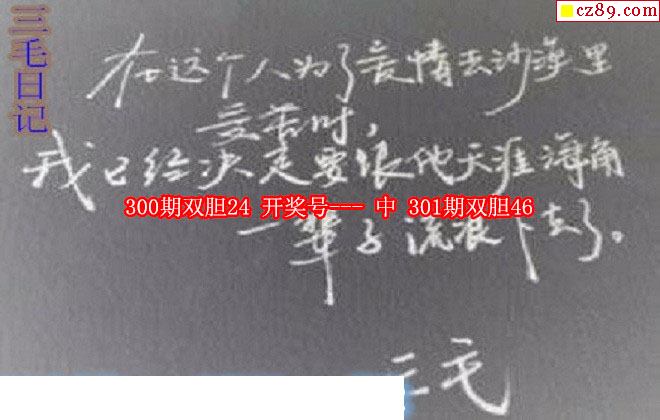 cz89.com
三毛日记
在这个人为了爱情去沙漠里
受苦时，
我已经决定要跟他天涯海角
300期双胆24 开奖号--- 中 301期双胆46
一辈子流浪下去了。
三毛